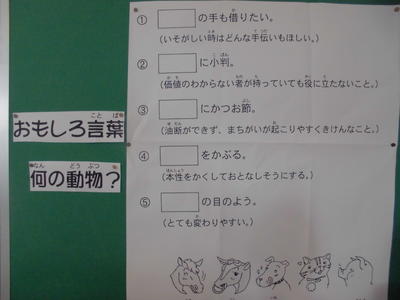 おもしろ言葉
何の動物？
① の手も借りたい。
（いそがしい時はどんな手伝いもほしい。）
② に小判。
（価値のわからない者が持っていても役に立たないこと。）
③ にかつお節。
（油断ができず、まちがいが起こりやすくきけんなこと。）
④ をかぶる。
（本性をかくしておとなしそうにする。）
⑤ の目のよう。
（とても変わりやすい。）